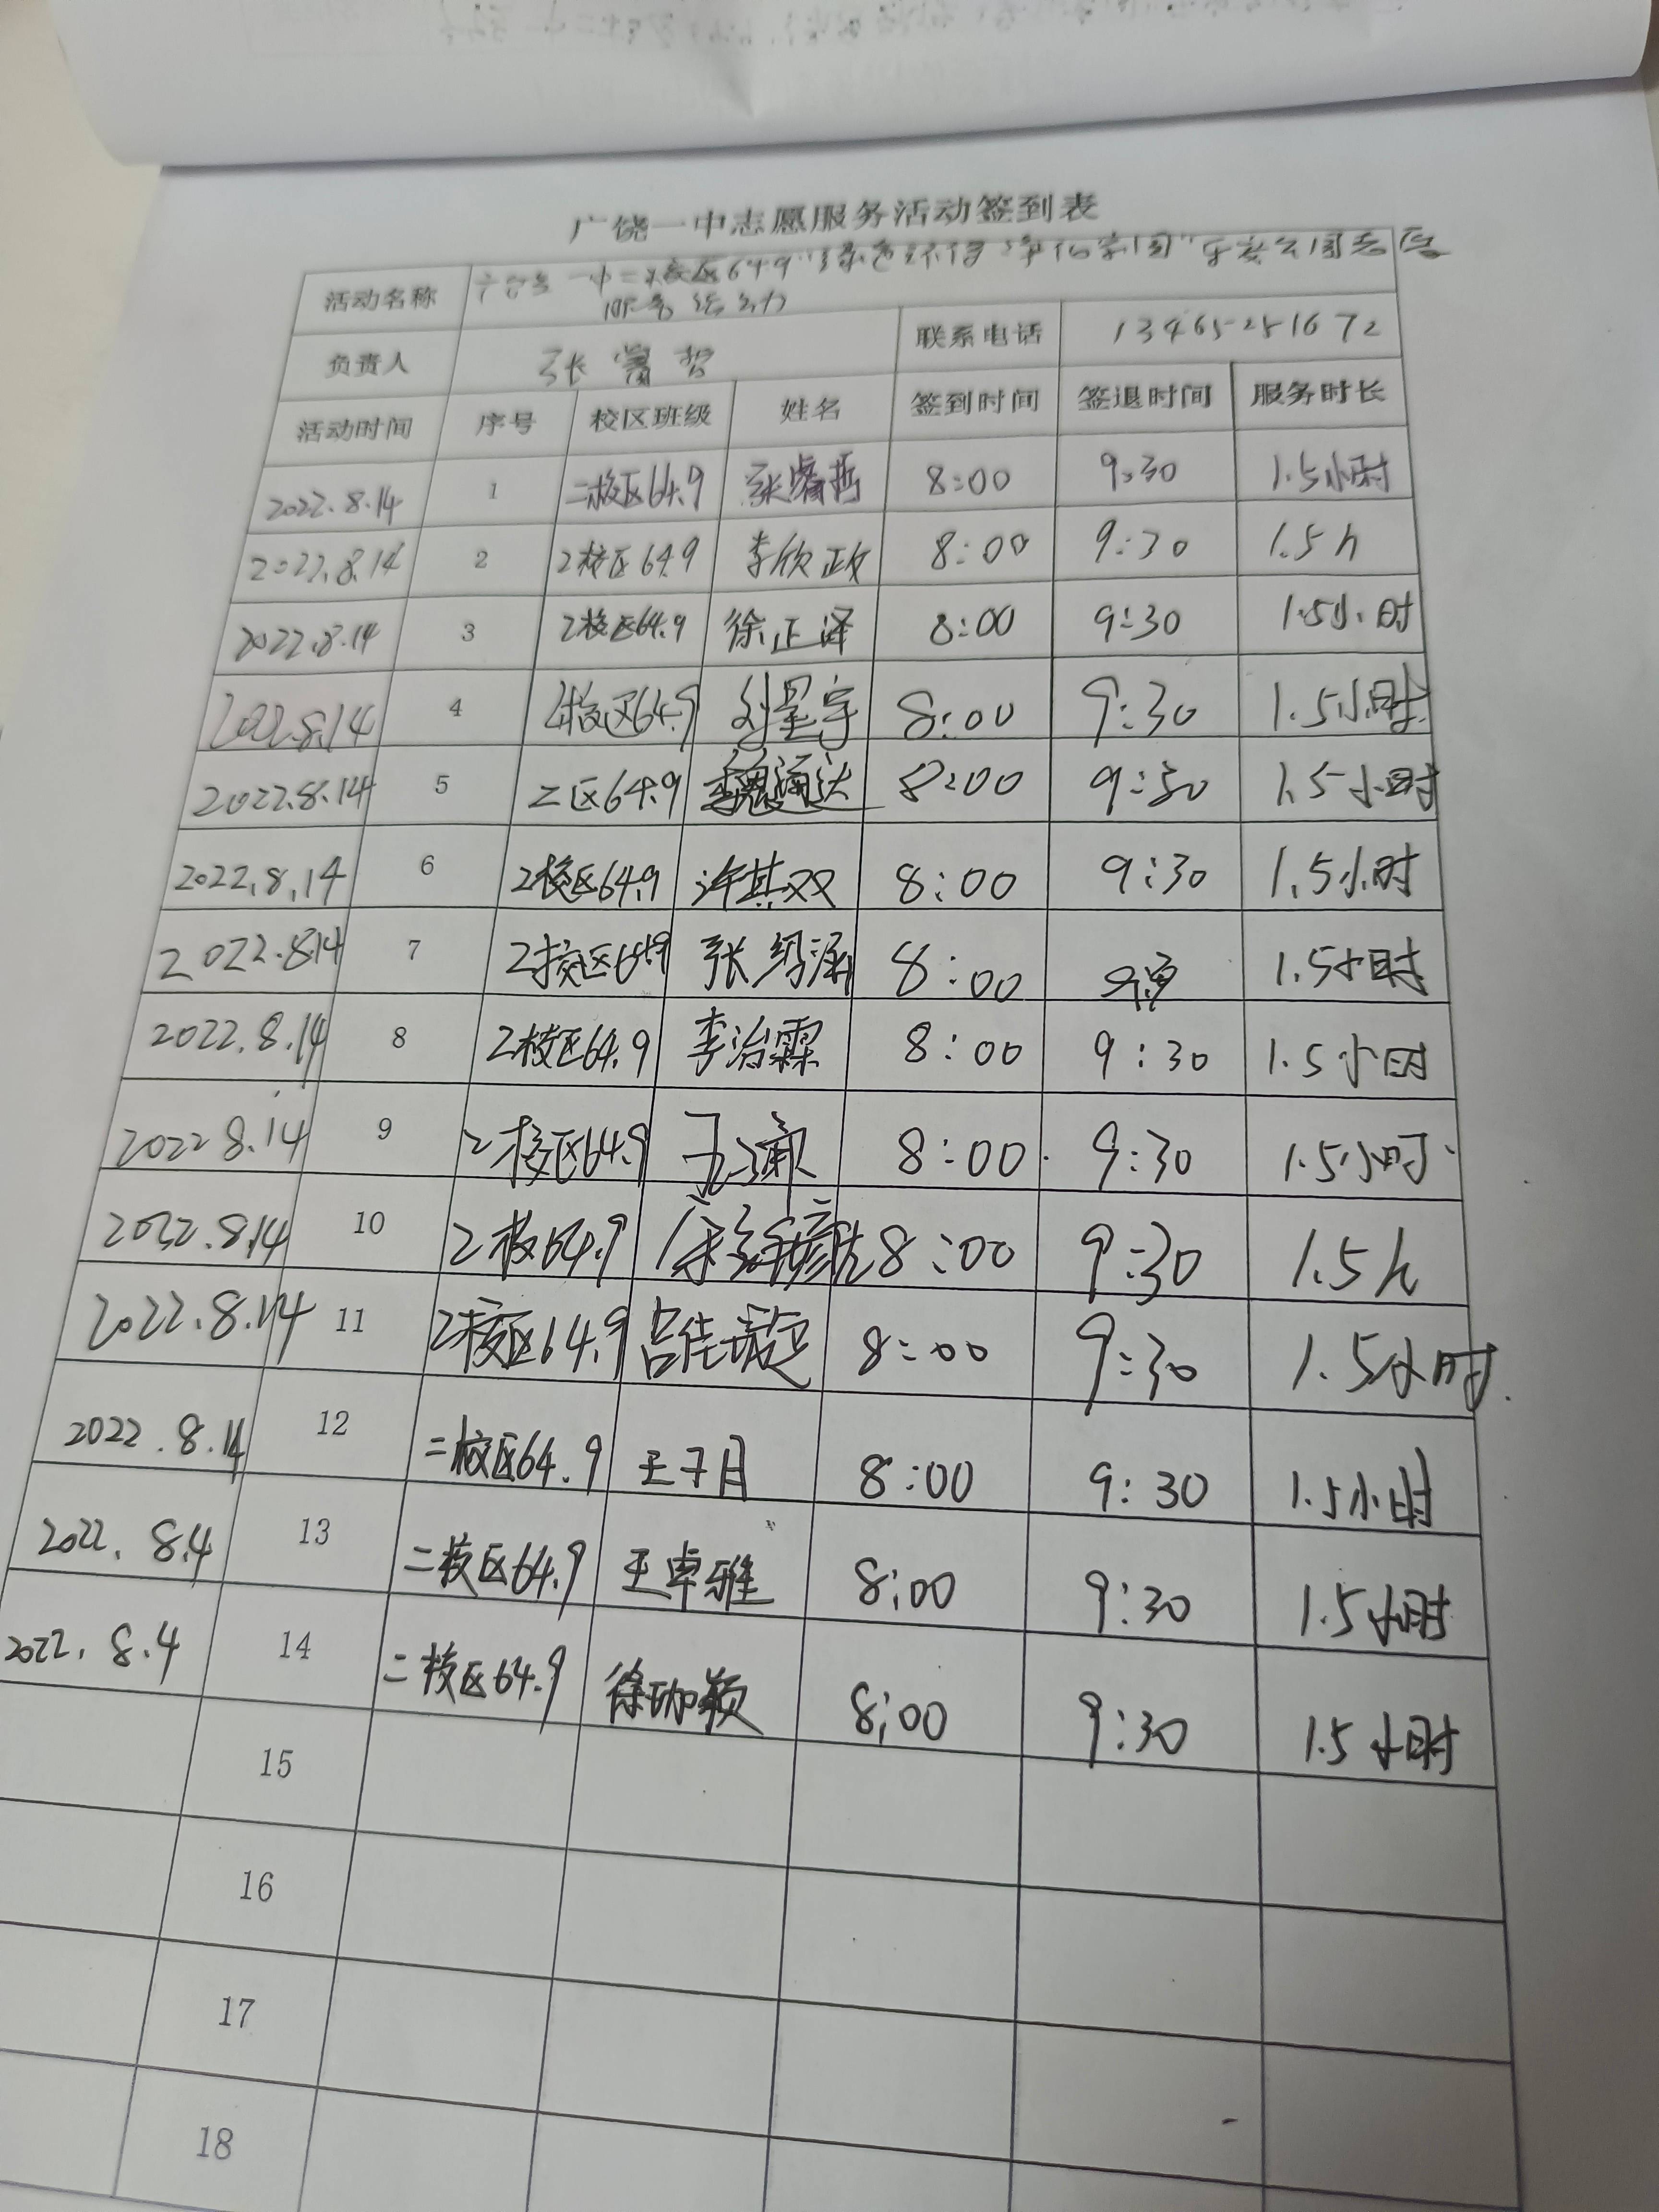 广饶一中志愿服务活动签到表
活动名称 一中二校区64.9 乐安公园志愿
服务活动
负责人 张睿哲 联系电话 13465251672
活动时间 序号 校区班级 姓名 签到时间 签退时间 服务时长
2022.8.14 1 二校区64.9 张睿哲 8:00 9:30 1.5小时
2022.8.14 2 2校区64.9 李欣政 8:00 9:30 1.5h
2022.8.14 3 2校区64.9 徐正泽 8:00 9:30 1.5小时
2022.8.14 4 2校区64.9 刘星宇 8:00 9:30 1.5小时
2022.8.14 5 二区64.9 8:00 9:30 1.5小时
2022.8.14 6 2校区64.9 许其双 8:00 9:30 1.5小时
2022.8.14 7 2校区64.9 张 8:00 1.5小时
2022.8.14 8 2校区64.9 李治霖 8:00 9:30 1.5小时
2022 8.14 9 2校区64.9 8:00 9:30 1.5小时
2022.8.14 10 2校64.9 8:00 9:30 1.5h
2022.8.14 11 2校区64.9 吕佳璇 8:00 9:30 1.5小时
2022.8.14 12 二校区64.9 王子月 8:00 9:30 1.5小时
2022.8.4 13 二校区64.9 王卓雅 8:00 9:30 1.5小时
2022.8.4 14 二校区64.9 徐珈颖 8:00 9:30 1.5小时
15
16
17
18